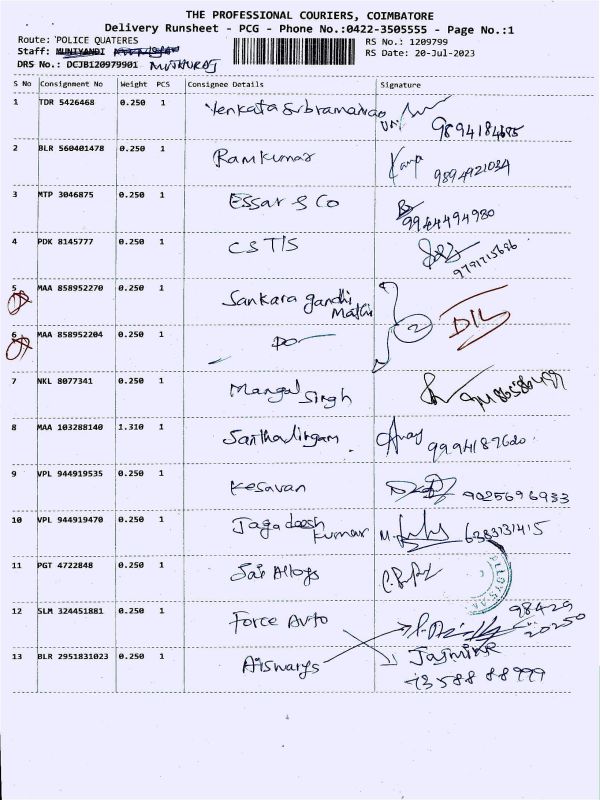 THE PROFESSIONAL COURIERS, COIMBATORE
Delivery Runsheet - PCG - Phone No.:0422-3505555 - Page No.:1
Route: 'POLICE QUATERES
RS No.: 1209799
Staff: MUNIYANDI
RS Date: 20-Jul-2023
DRS No.: DCJB120979901 MUTHURAJ
S No Consignment No Weight PCS Consignee Details Signature
1 TDR 5426468 0.250 1 Venkata Subramaniao
9894184685
2 BLR 560401478 0.250 1 Ramkumar
9894921034
3 MTP 3046875 0.250 1 Essar & Co
9944494980
4 PDK 8145777 0.250 1 CSTIS
9791715686
5 MAA 858952270 0.250 1 Sankara gandhi
Mathi
2
DIL
6 MAA 858952204 0.250 1 DO
7 NKL 8077341 0.250 1 Mangal Singh
8 MAA 103288140 1.310 1 Santhalingam
9994187620
9 VPL 944919535 0.250 1 Kesavan
9025696933
10 VPL 944919470 0.250 1 Jagadeesh
Kumar
6383131415
11 PGT 4722848 0.250 1 Sai Alloys
12 SLM 324451881 0.250 1 Force Auto
98429
20250
13 BLR 2951831023 0.250 1 Aiswarys
Jasmine
73588 88999